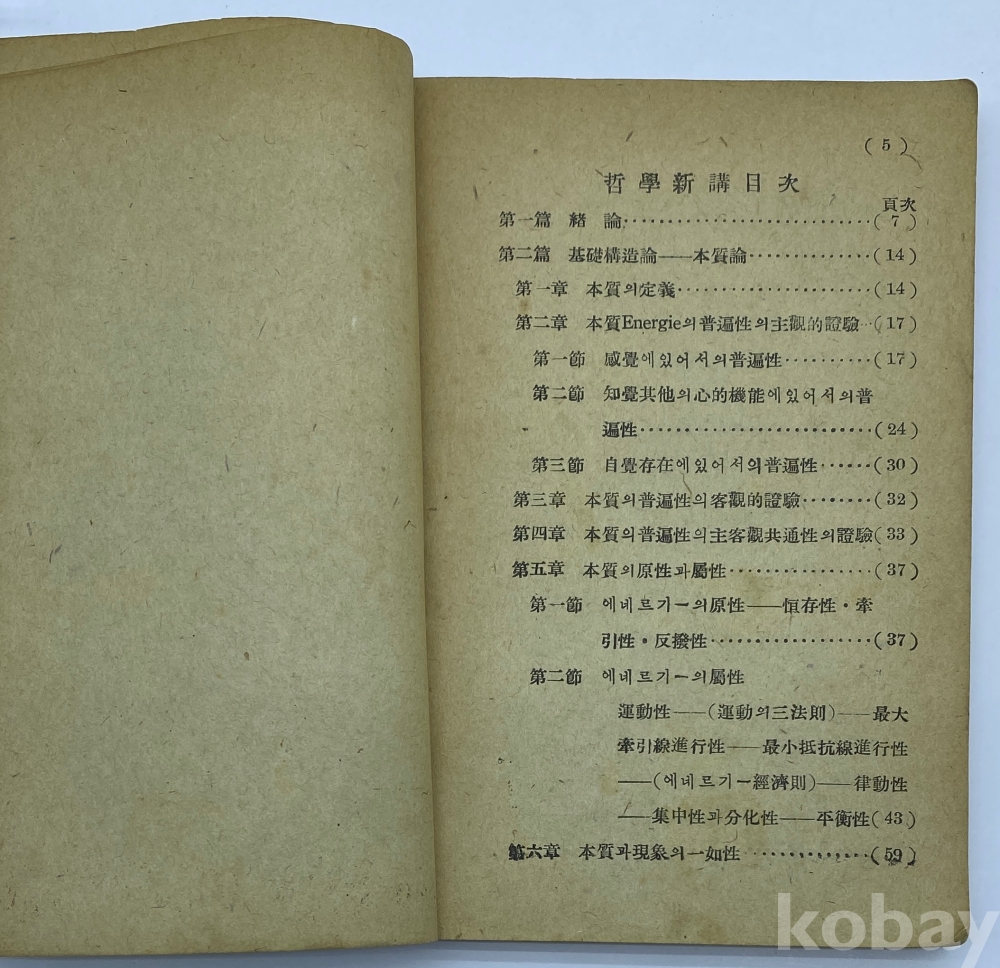 ( 5 )
哲學新講目次
頁次
第一篇 緖 論……………………………( 7 )
第二篇 基礎構造論——本質論……………(14)
第一章 本質의定義……………………(14)
第二章 本質Energie의普遍性의主觀的證驗…(17)
第一節 感覺에있어서의普遍性…………(17)
第二節 知覺其他의心的機能에있어서의普
遍性…………………………(24)
第三節 自覺存在에있어서의普遍性……(30)
第三章 本質의普遍性의客觀的證驗………(32)
第四章 本質의普遍性의主客觀共通性의證驗(33)
第五章 本質의原性과屬性………………(37)
第一節 에네르기ー의原性——恒存性・牽
引性・反撥性…………………(37)
第二節 에네르기ー의屬性
運動性——(運動의三法則)——最大
牽引線進行性——最小抵抗線進行性
——(에네르기ー經濟則)——律動性
——集中性과分化性——平衡性(43)
第六章 本質과現象의一如性……………(59)
kobay